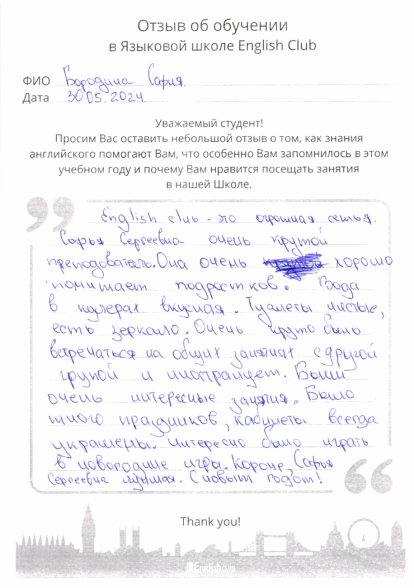 Отзыв об обучении
в Языковой школе English Club
ФИО Бородина София.
Дата 30.05.2024.
Уважаемый студент!
Просим Вас оставить небольшой отзыв о том, как знания
английского помогают Вам, что особенно Вам запомнилось в этом
учебном году и почему Вам нравится посещать занятия
в нашей Школе.
English club - это огромная семья.
Софья Сергеевна очень крутой
преподаватель. Она очень хорошо
понимает подростков. Вода
в кулерах вкусная. Туалеты чистые,
есть зеркало. Очень круто было
встречаться на общих занятиях с другой
групой и иностранцем. Были
очень интересные занятия. Было
много праздников, кабинеты всегда
украшены. Интересно было играть
в новогодние игры. Короче, Софья
Сергеевна лучшая. С новым годом!
Thank you!
English Club